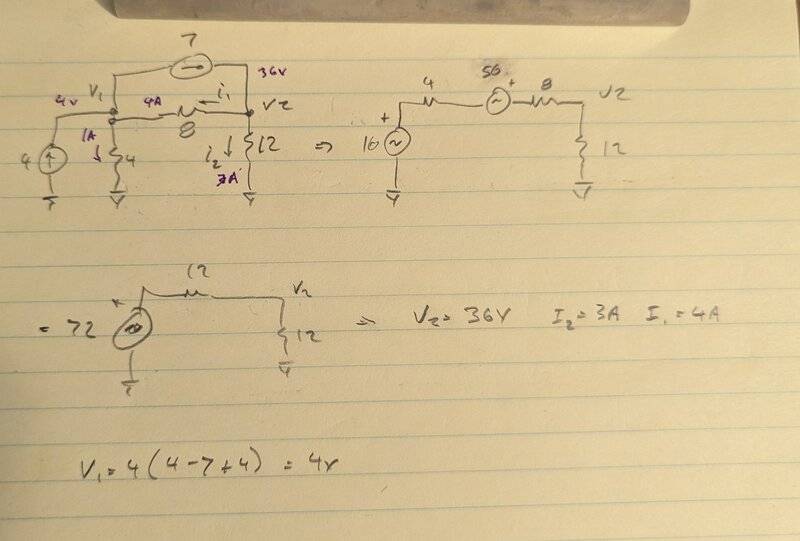 7
36V
4V V₁ 4A i₁ V2
8
1A
4 4 i₂ 12
3A
⇒
56
4 + 8 V2
+
16 12
12 V₂
+
= 72 12
⇒ V₂= 36V I₂=3A I₁=4A
V₁= 4(4-7+4) = 4V